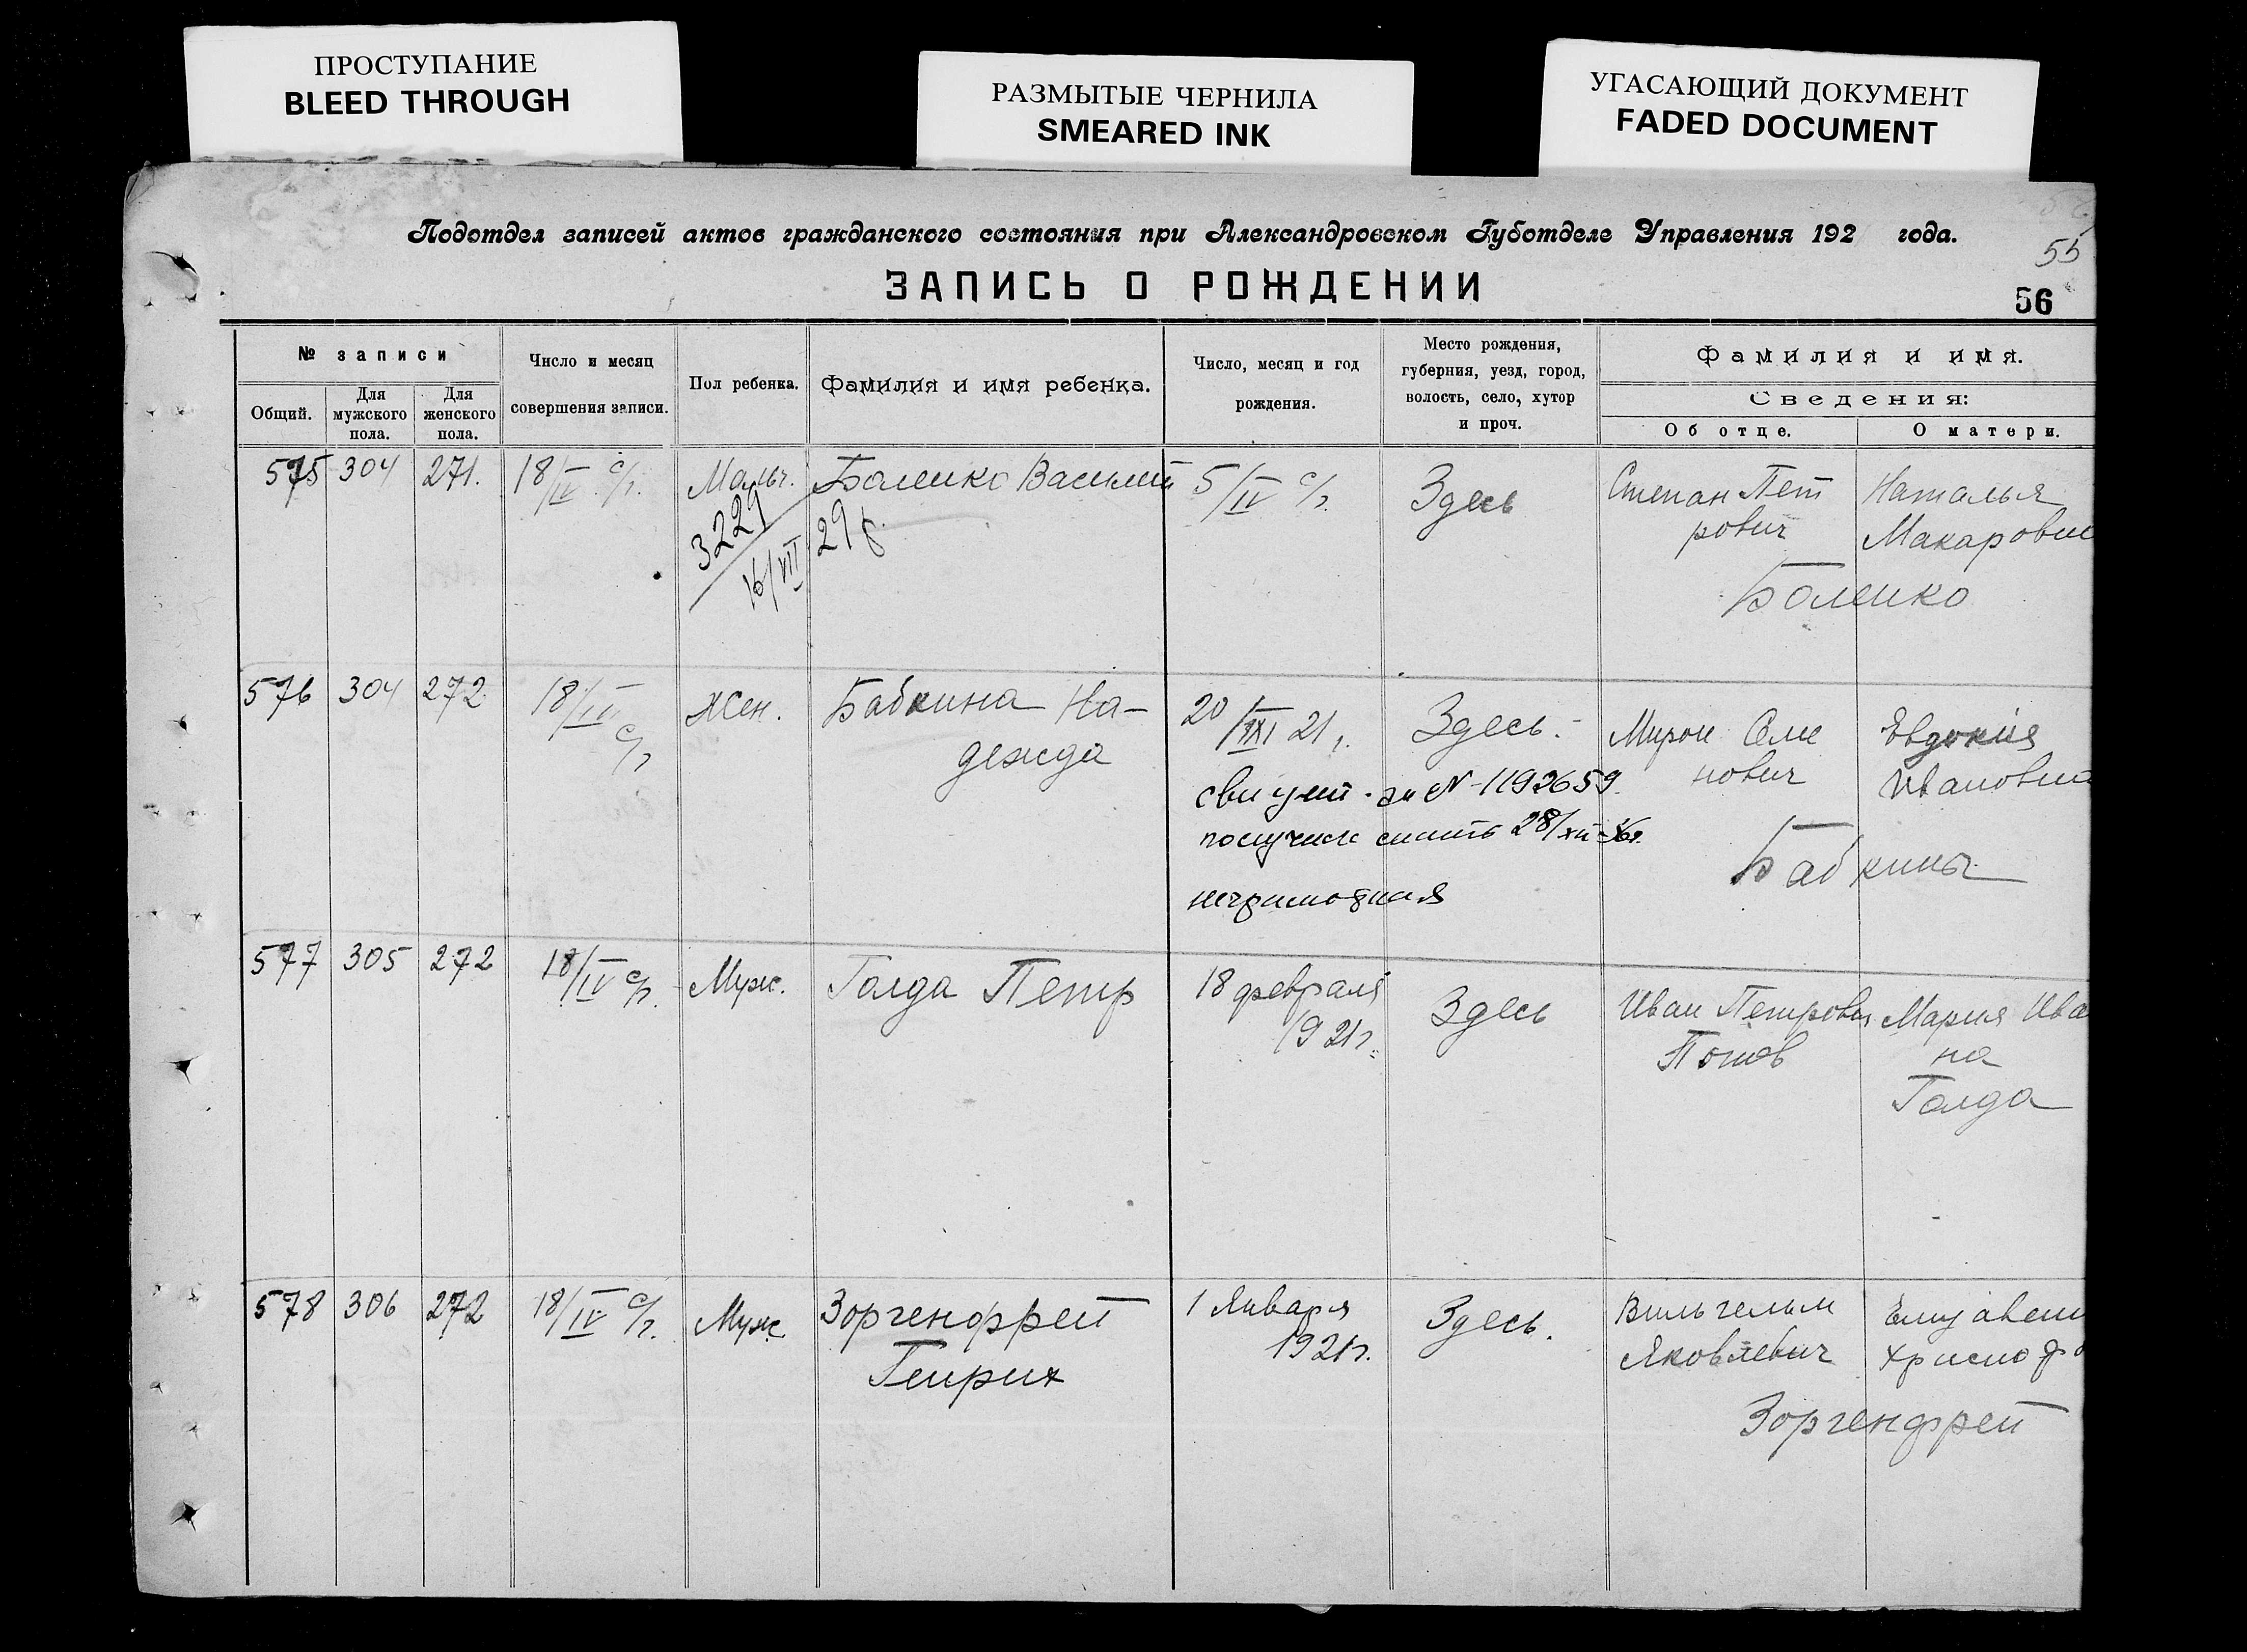 ПРОСТУПАНИЕ
BLEED THROUGH
РАЗМЫТЫЕ ЧЕРНИЛА
SMEARED INK
УГАСАЮЩИЙ ДОКУМЕНТ
FADED DOCUMENT
Подотдел записей актов гражданского состояния при Александровском Губотделе Управления 192 года.
55
ЗАПИСЬ О РОЖДЕНИИ
56
№ записи
Общий.
Для мужского пола.
Для женского пола.
Число и месяц
совершения записи.
Пол ребенка.
Фамилия и имя ребенка.
Число, месяц и год
рождения.
Место рождения,
губерния, уезд, город,
волость, село, хутор
и проч.
Фамилия и имя.
Сведения:
Об отце.
О матери.
575 304 271. 18/IV с/г. Мальч. Боленко Василий 5/IV с/г. Здесь Степан Пет Наталья
рович Макаровн
3229
16/VII 29 г.
Боленко
576 304 272 18/IV с/г Жен. Бабкина На- 20/ 21 г. Здесь. Мирон Семе Евдокия
дежда нович Ивановна
№ 1192659
получила мать 28/XII
неграмотная
Бабкины
577 305 272 18/IV с/г. Муж. Голда Петр 18 февраля Здесь Иван Петрович Мария Ива
1921г. Попов на
Голда
578 306 272 18/IV с/г. Муж. Зоргенфрей 1 Января Здесь. Вильгельм Елизавет
Генрих 1921г. Яковлевич Христофо
Зоргенфрей